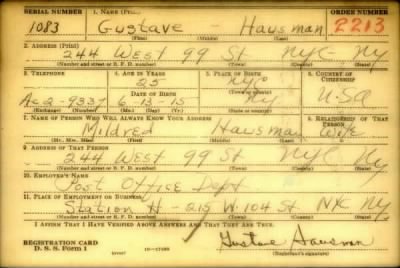 SERIAL NUMBER 1. NAME (Print) ORDER NUMBER
1083 Gustave - Hausman 2213
(First) (Middle) (Last)
2. ADDRESS (Print)
244 West 99 St NYC - NY
(Number and street or R. F. D. number) (Town) (County) (State)
3. TELEPHONE 4. AGE IN YEARS 5. PLACE OF BIRTH 6. COUNTRY OF CITIZENSHIP
25 NYC
DATE OF BIRTH
Ac2-9337 6-13-15 NY USA
(Exchange) (Number) (Mo.) (Day) (Yr.) (State or country)
7. NAME OF PERSON WHO WILL ALWAYS KNOW YOUR ADDRESS 8. RELATIONSHIP OF THAT PERSON
Mildred Hausman Wife
(Mr., Mrs., Miss) (First) (Middle) (Last)
9. ADDRESS OF THAT PERSON
244 West 99 St NYC NY
(Number and street or R. F. D. number) (Town) (County) (State)
10. EMPLOYER'S NAME
Post Office Dept
11. PLACE OF EMPLOYMENT OR BUSINESS
Station H - 215 W. 104 St NYC NY
(Number and street or R. F. D. number) (Town) (County) (State)
I AFFIRM THAT I HAVE VERIFIED ABOVE ANSWERS AND THAT THEY ARE TRUE.
REGISTRATION CARD
D. S. S. Form 1 (over) Gustave Hausman
(Registrant's signature)